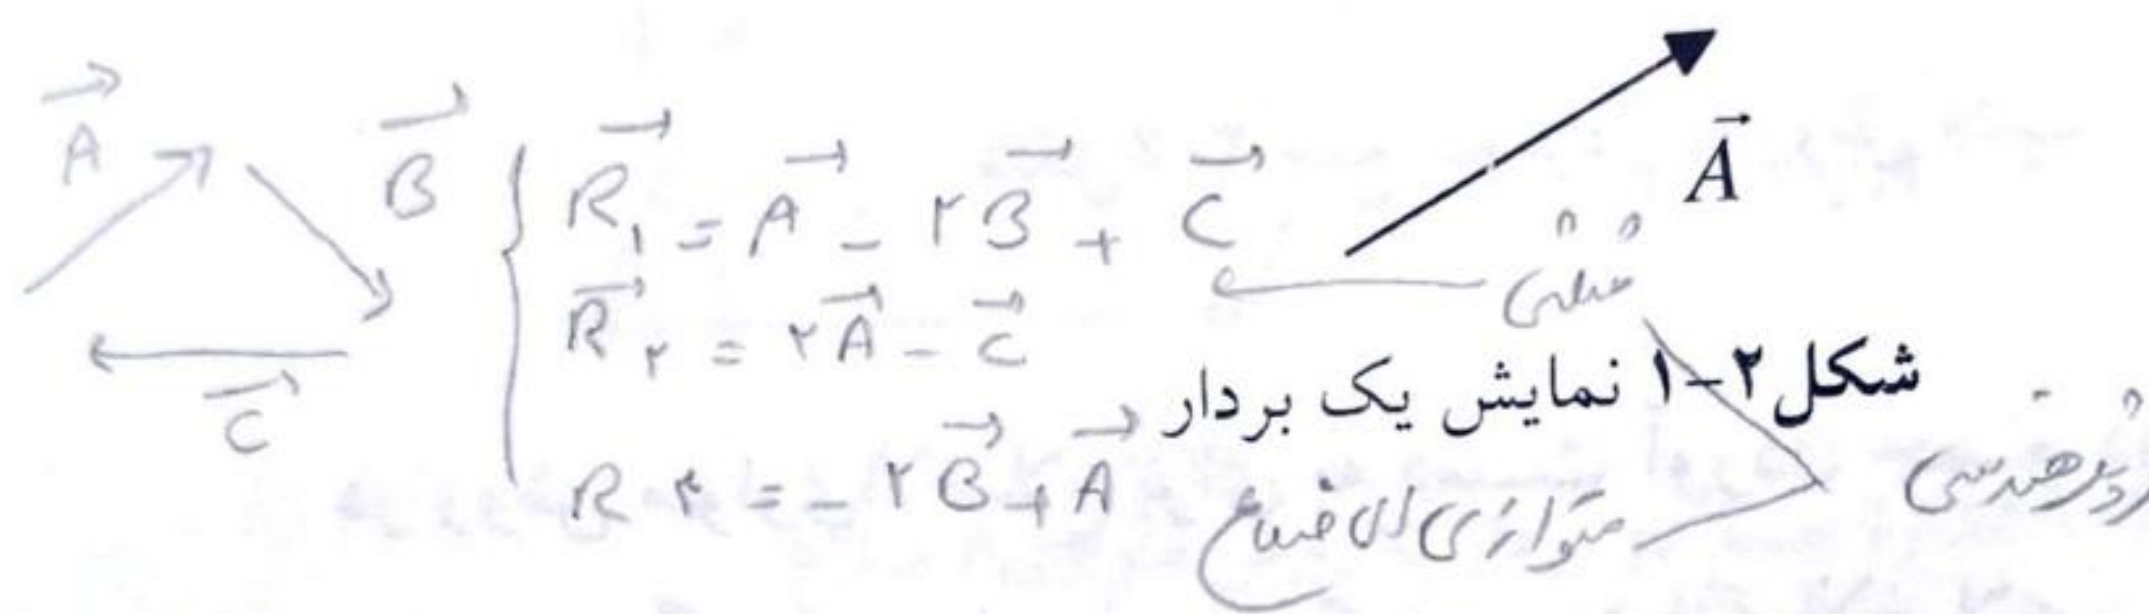 A⃗
B⃗
C⃗
R⃗₁ = A⃗ - ۲B⃗ + C⃗
R⃗۲ = ۲A⃗ - C⃗
= - ۲B⃗ + A⃗
A⃗
شکل ۲-۱ نمایش یک بردار
متوازی الاضلاع
هندسی